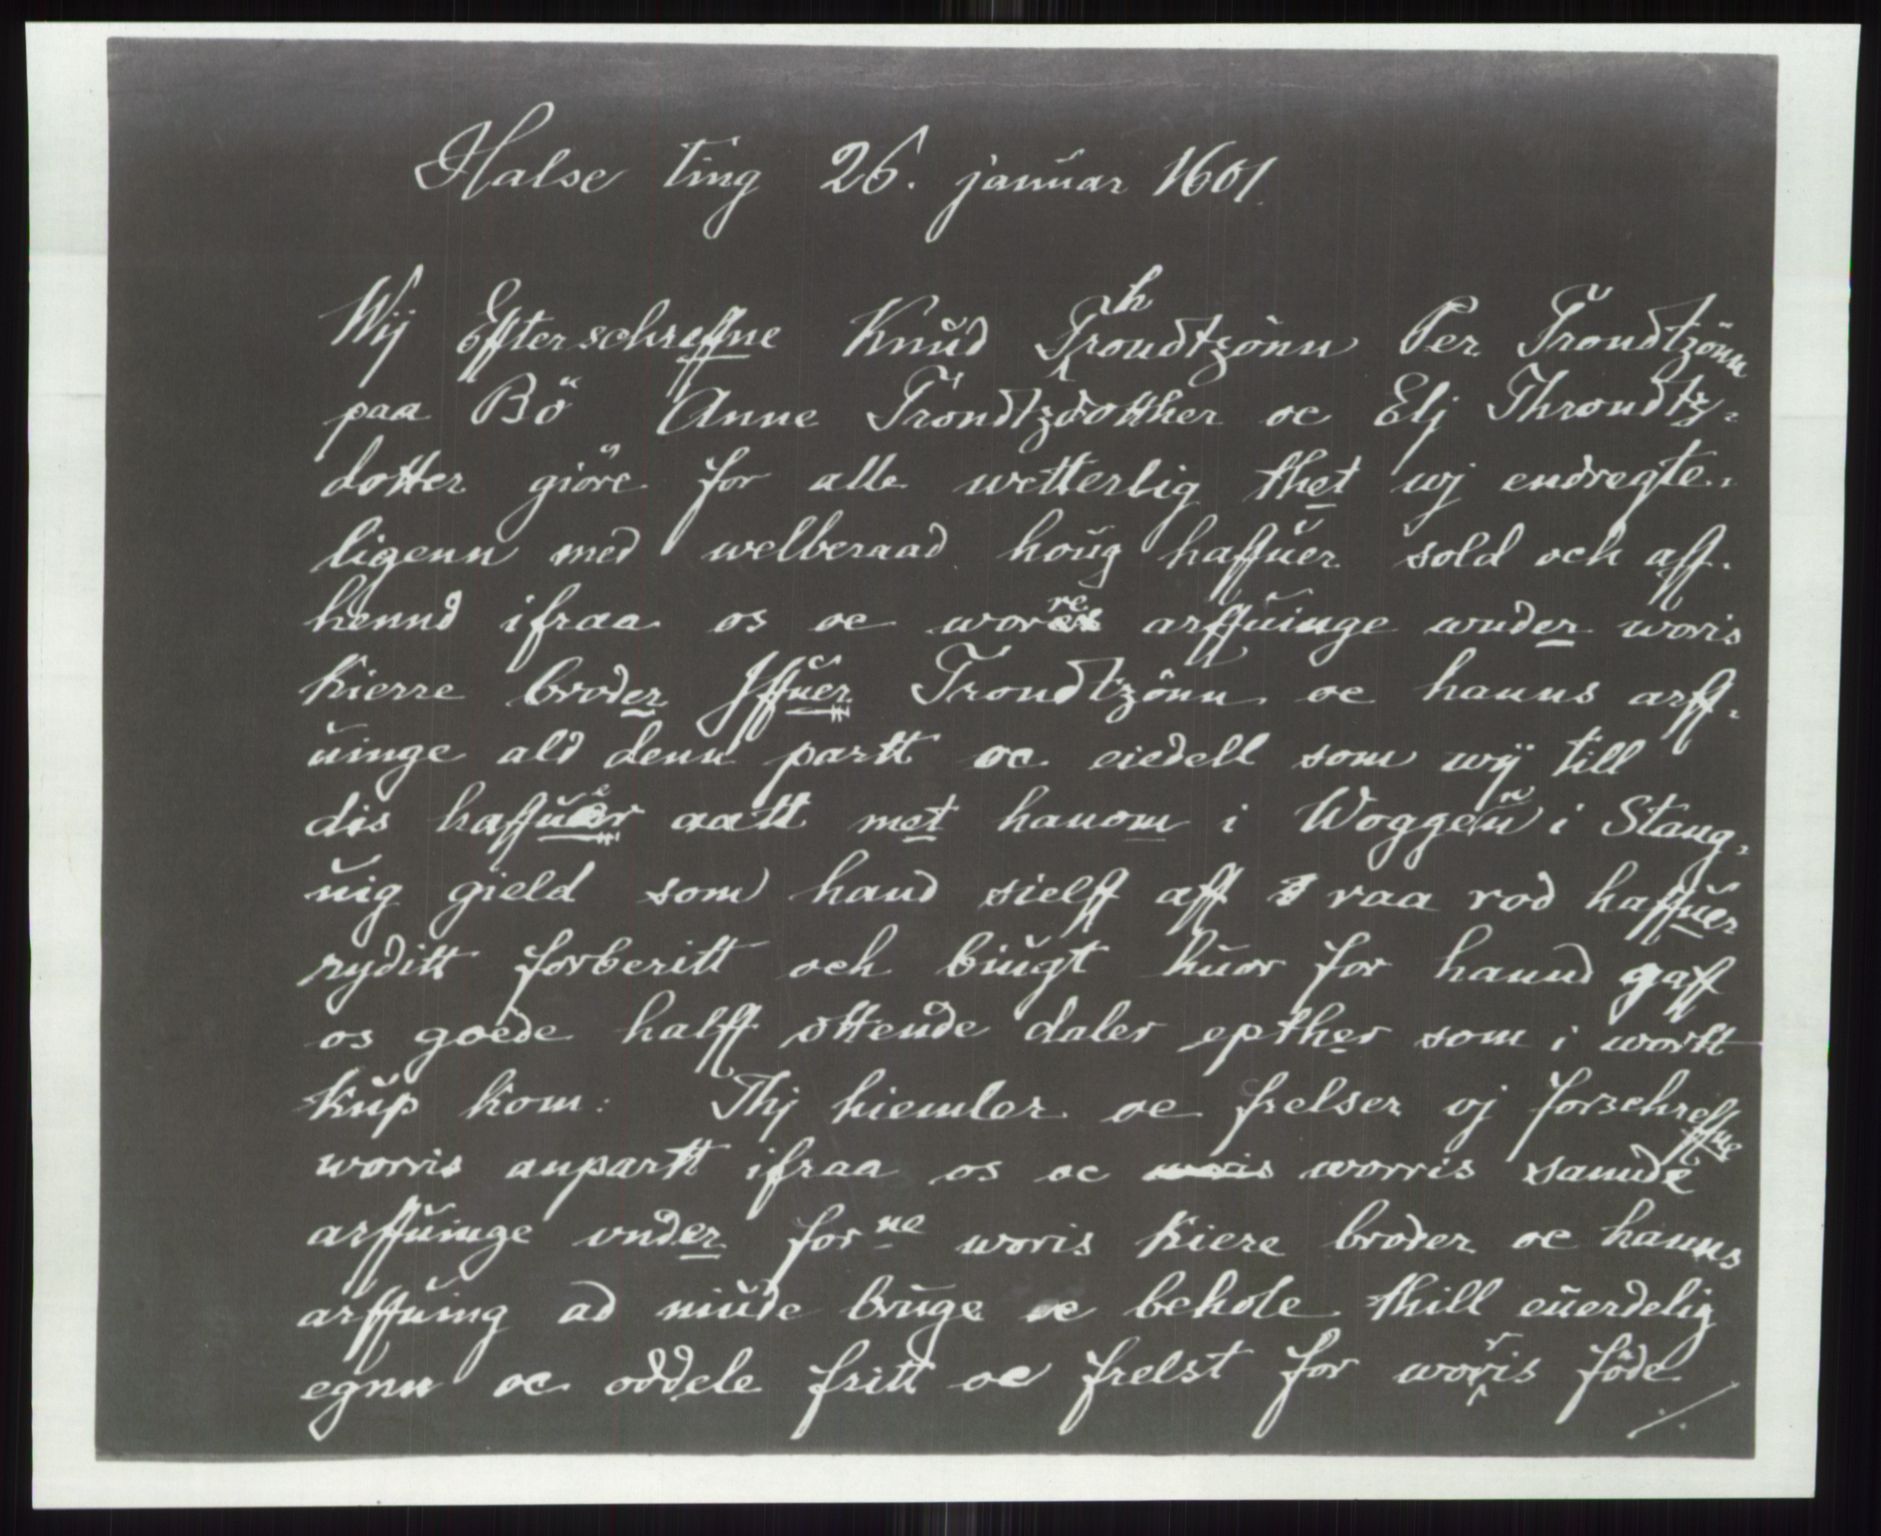 Halse ting 26. januar 1601.
Wij Efterschreffne Knud Throndtzönn Per Trondtzönn
paa Bö Anne Trondtzdotther oc Elj Throndtz-
dotter giöre for alle wetterlig thet wj endregte-
ligenn med welberaad houg haffuer sold och aff-
hennd ifraa os oc worre arffuinge wnder woris
kierre broder Iffuer Trondtzönn oc hanns arff-
uinge ald denn partt oc eiedell som wij till
dis haffuer aatt met hanom i Woggenn i Stang-
uig gield som hand sielff aff raa rod haffuer
ryditt forberitt och biugt huor for hannd gaff
os goede halff ottende daler epther som i wortt
kup kom: Thj hiemler oc frelser vj forschreffne
worris anpartt ifraa os oc worris samde
arffuinge vnder forne woris kiere broder oc hanns
arffuing ad niude bruge oc behole thill euerdelig
egnn oc oddele fritt oc frelst for worris föde